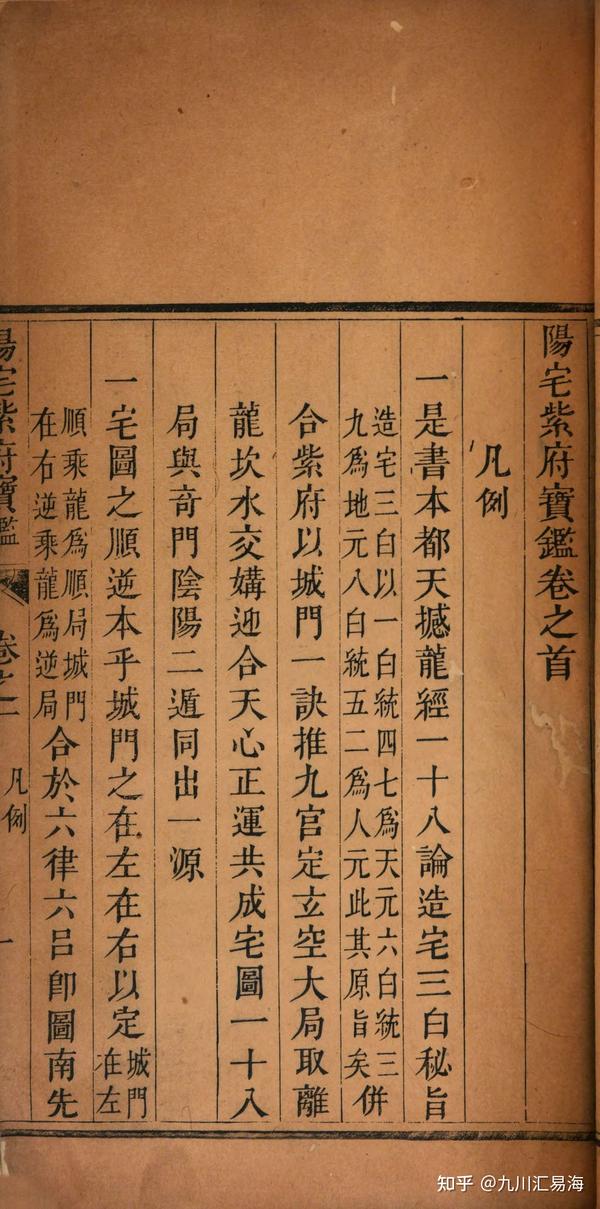 陽宅紫府寶鑑卷之首
凡例
一是書本都天撼龍經一十八論造宅三白秘旨
造宅三白以一白統四七爲天元六白統三
九爲地元八白統五二爲人元此其原旨矣併
合紫府以城門一訣推九宫定玄空大局取離
龍坎水交媾迎合天心正運共成宅圖一十八
局與奇門陰陽二遁同出一源
一宅圖之順逆本乎城門之在左在右以定城門
在左
順乘龍爲順局城門
在右逆乘龍爲逆局
合於六律六呂卽圖南先
陽宅紫府寶鑑
卷之
凡例
一
知乎 @九川汇易海